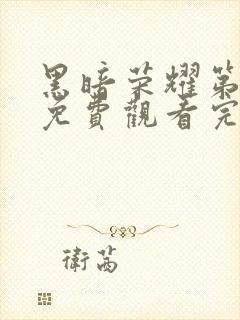 黑暗荣耀第
免費觀看完
衛茜